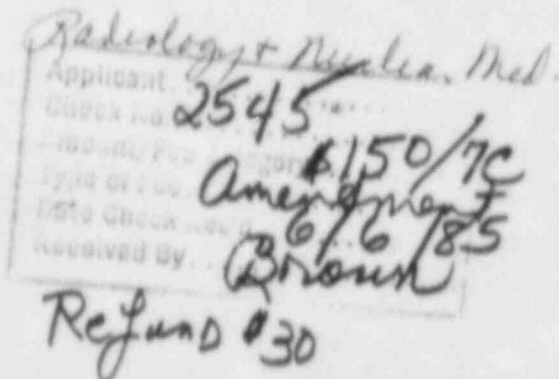 Radiology + Nuclear Med
Applicant
2545
Check No.
$150/7C
Amount/Fee Category
Type of Fee
Amendment
Date Check Rec'd
6/6/85
Received By
Brown
Refund $30